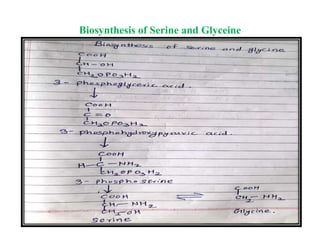 Biosynthesis of Serine and Glyceine
Biosynthesis of serine and glycine
COOH
CH - OH
CH2OPO3H2
3 - phosphoglyceric acid.
COOH
C = O
CH2OPO3H2
3 - phosphohydroxypyruvic acid.
COOH
H - C - NH2
CH2OPO3H2
3 - Phospho serine
COOH COOH
CH - NH2 CH2 - NH2
CH2 - OH Glycine.
Serine